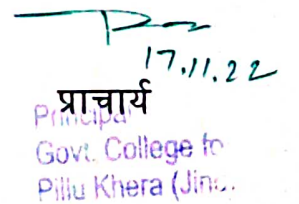 17.11.22
प्राचार्य
Principal
Govt. College
Pillu Khera